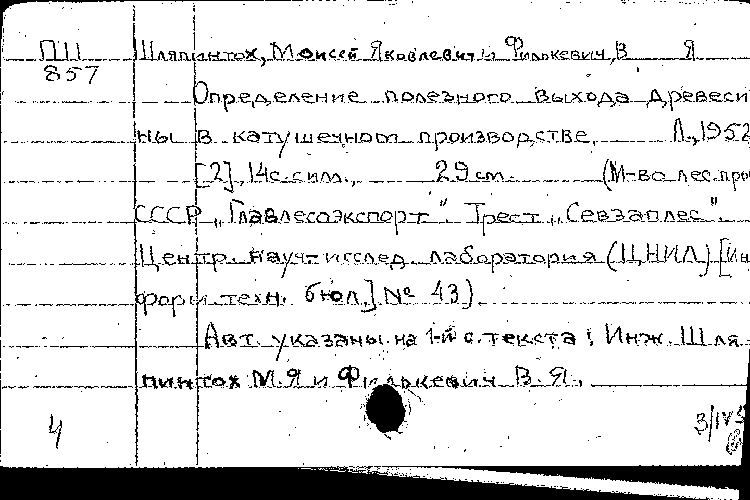 П11 Шляпинтох, Моисей Яковлевич и Филькевич, В Я
857
Определение полезного выхода древеси
ны в катушечном производстве. Л., 1952
[2], 14 с. с илл., 29 см. (М-во лес. про
СССР „Главлесоэкспорт". Трест „Севзаплес".
Центр. научн-исслед. лаборатория (ЦНИЛ) [Ин
форм. техн. бюл.] № 43).
Авт. указаны на 1-й с. текста: Инж. Шля
пинтох М.Я и Филькевич В.Я.
4 3/IV 5